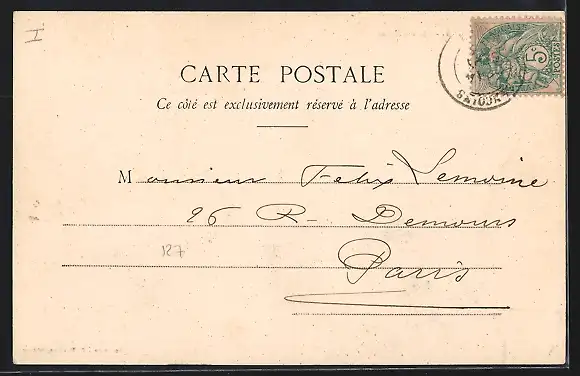 I
5c
POSTES
CARTE POSTALE
Ce côté est exclusivement réservé à l'adresse
Monsieur Felix Lemoine
26 R- Demours
Paris
127